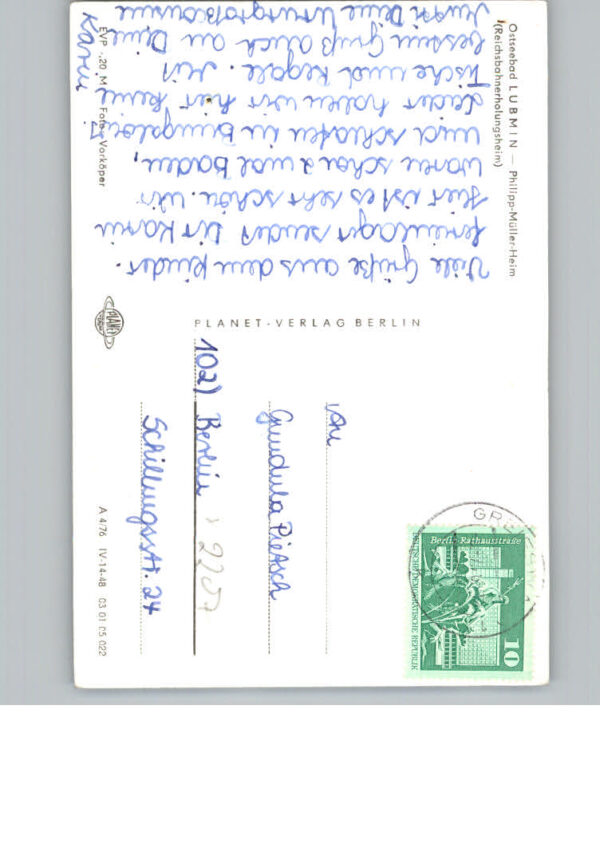 Ostseebad LUBMIN — Philipp-Müller-Heim
(Reichsbahnerholungsheim)
Viele Grüße aus dem Kinder-
ferienlager sendet Dir Karin
Hier ist es sehr schön. Wir
waren schon 2 mal baden,
und schlafen in Bungalow.
Leider haben wir hier keine
Tische und Regale. Mit
bestem Gruß auch an Deine
Deine Urgroßcousine
Karin
EVP -,20 M Foto: Vorköper
PLANET-VERLAG BERLIN
PLANET
An
Gundula Pietsch
1020 Berlin
2207
Schillingsstr. 24
A 4/76 IV-14-48 03 01 05 022
GRE
Berlin-Rathausstraße
DEUTSCHE DEMOKRATISCHE REPUBLIK
10